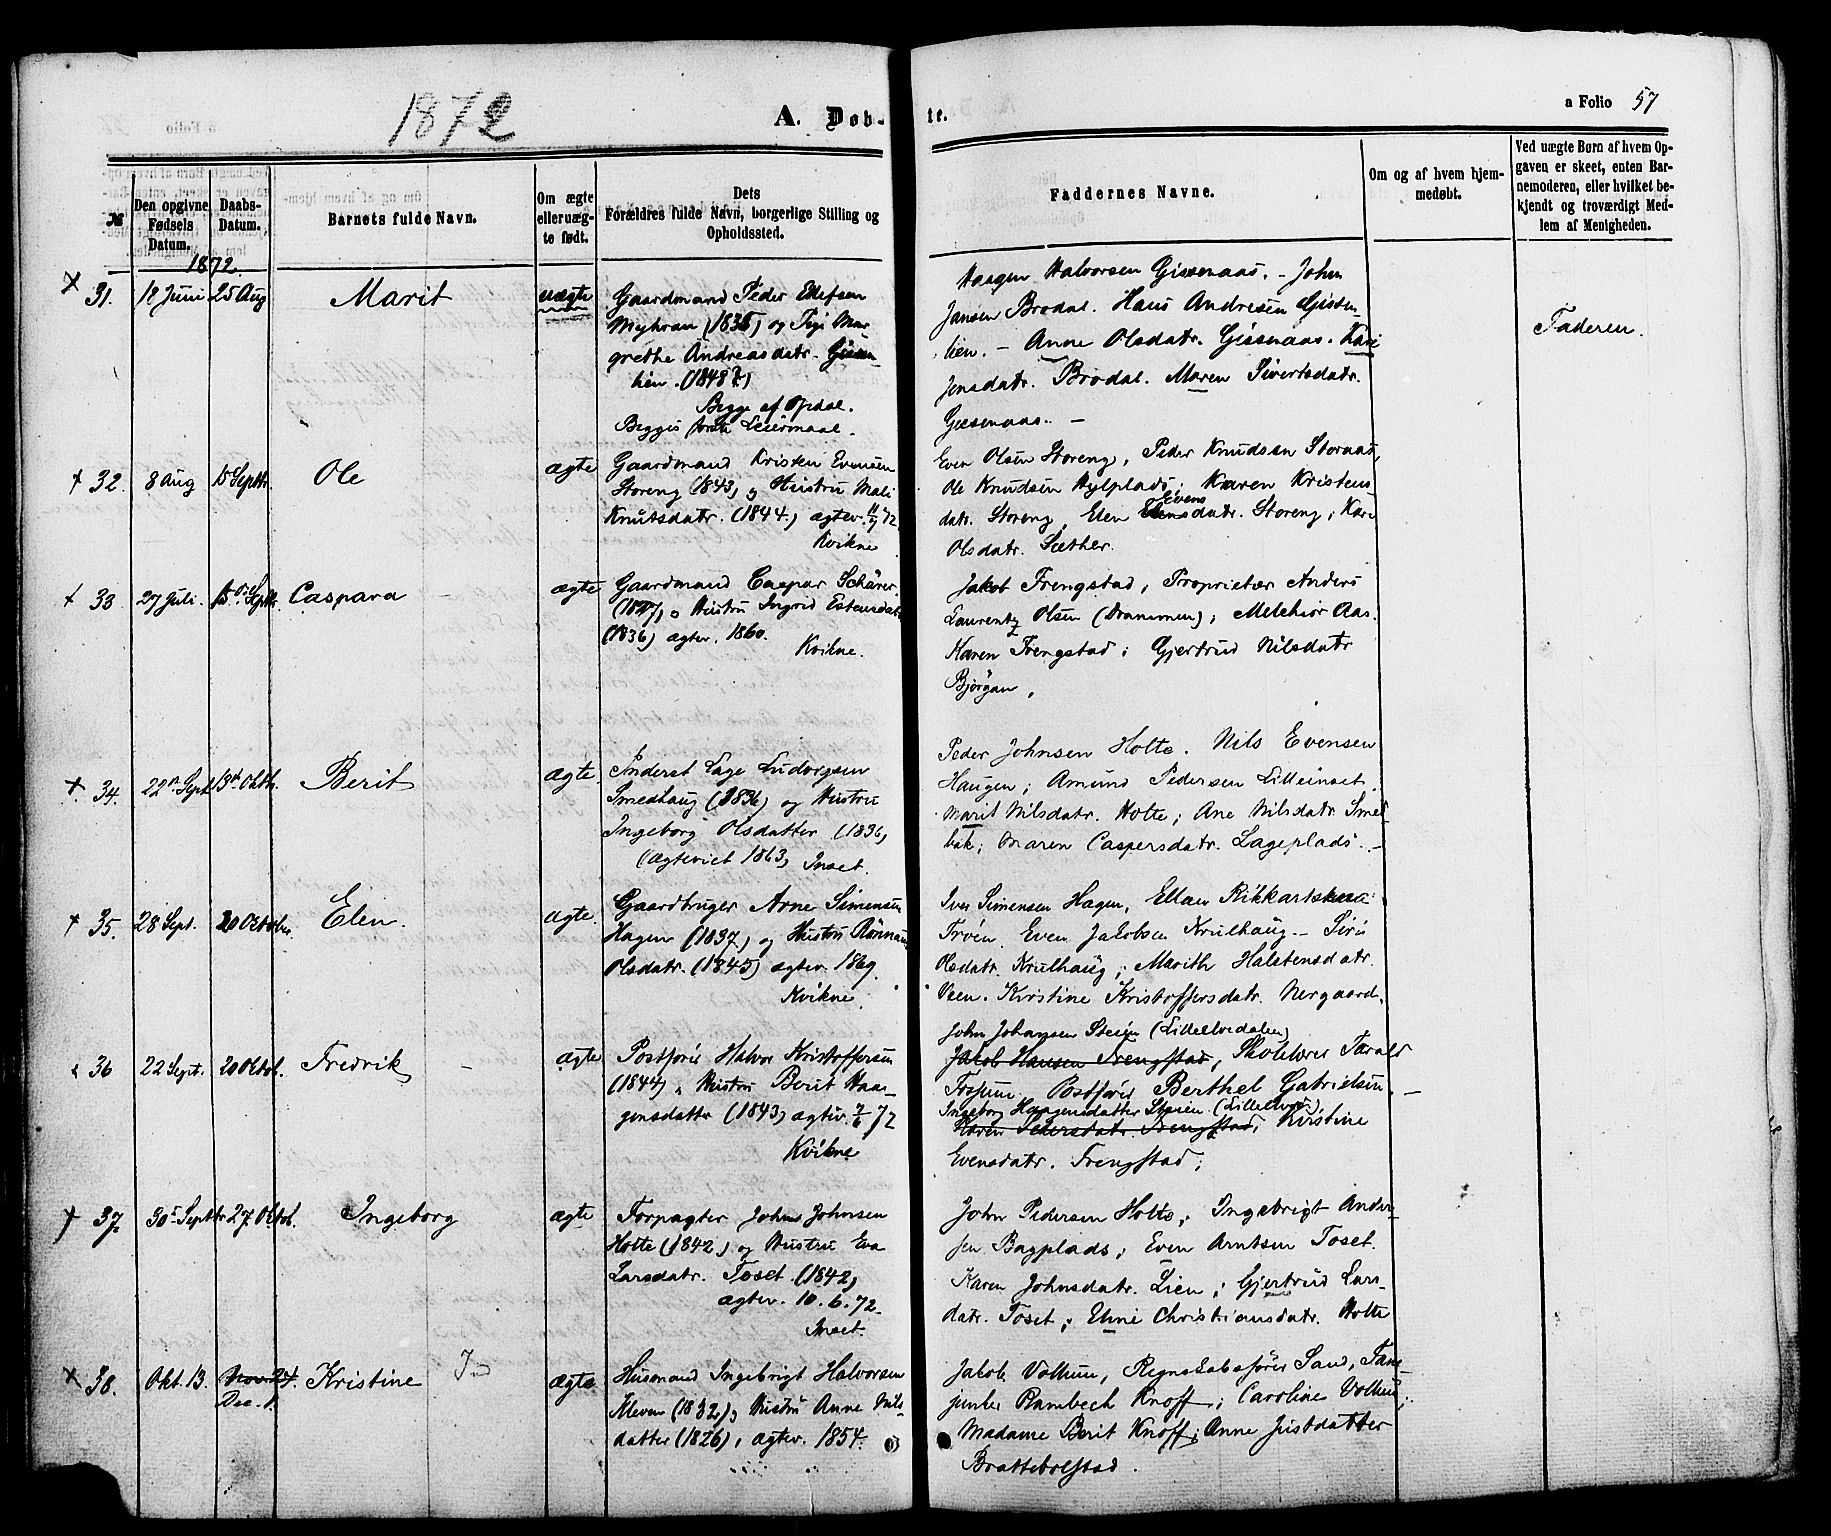 1872
A. Døb-
te.
a Folio 57
№
Den opgivne Fødsels Datum.
Daabs-Datum.
Barnets fulde Navn.
Om ægte eller uæg-te født.
Dets Forældres fulde Navn, borgerlige Stilling og Opholdssted.
Faddernes Navne.
Om og af hvem hjem-medøbt.
Ved uægte Børn af hvem Op-gaven er skeet, enten Bar-nemoderen, eller hvilket be-kjendt og troværdigt Med-lem af Menigheden.
1872.
31. 18 Juni 25 Aug Marit uægte
Gaardmand Peder
Myhran (1835) og Mar-
grethe Andreasdatr.
lien. (1848?)
Begge af Opdal.
Begges første Leiermaal.
Haagen Halvorsen Gissenaas. - John
Jansen Brodal. Hans Andresen Gissen-
lien. - Anne Olsdatr. Gissenaas. Kari
Jensdatr. Brodal. Maren Sivertsdatr.
Gissenaas. -
Faderen.
32. 8 Aug 15 Septbr. Ole ægte
Gaardmand Kristen Evensen
Storeng (1843) og Hustru Mali
Knutsdatr. (1844) ægtev. 11/7 72
Kvikne
Even Olsen Storeng, Peder Knudsen Stornæs,
Ole Knudsen Hylplads; Karen Kristens
datr. Storeng, Elen Evensdatr. Storeng; Kari
Olsdatr. Sæther.
33 27 Juli. 15de Septbr. Caspara - ægte
Gaardmand Caspar Schärer
(1827) og Hustru Ingrid Estensdatr
(1836) ægtev. 1860.
Kvikne.
Jakob Frengstad, Proprietær Anders
Laurentz Olsen (Drammen); Melchior Aas.
Karen Frengstad; Gjertrud Nilsdatr
Bjørgan,
34. 22de Sept 13de Oktbr. Berit ægte
Inderst Lage Ludvigsen
Smedhaug (1836) og Hustru
Ingeborg Olsdatter (1836)
(ægteviet 1863) Inset.
Peder Johnsen Holte. Nils Evensen
Haugen; Amund Pedersen Lilleinset.
Marit Nilsdatr. Holte; Ane Nilsdatr. Smed
bak; Maren Caspersdatr. Lageplads. -
35. 28 Sept. 20 Oktober Elen. ægte.
Gaardbruger Arne Simensen
Hagen (1837) og Hustru Rønnaug
Olsdatr. (1845) ægtev. 1869.
Kvikne
Iver Simensen Hagen,
Trøen. Even Jakobsen Krulhaug - Siri
Olsdatr. Krulhaug; Marith Halstensdatr.
Veen. Kirstine Kristoffersdatr. Nergaard.
36 22 Sept. 20 Oktob. Fredrik - ægte
Postfører Halvor Kristoffersen
(1844) og Hustru Berit Haa-
gensdatter (1843) ægtev. 2/6 72
Kvikne
John Johansen Steien (Lilleelvedalen)
Jakob Hansen Frengstad, Skolelærer Tarald
Postfører Berthel Gabrielsen. -
Ingeborg Haagensdatter Steien (Lilleelved.)
Karen Frengstad; Kirstine
Evensdatr. Frengstad;
37. 30te Septbr 27. Oktob. Ingeborg ægte
Forpagter John Johnsen
Holte (1842) og Hustru Eva
Larsdatr. Toset. (1842)
ægtev. 10. 6. 72.
Inset.
John Pedersen Holte; Ingebrigt Ander-
sen Bagplads; Even Arntsen Toset.
Karen Johnsdatr. Lien; Gjertrud Lars-
datr. Toset; Christiansdatr. Holte
38. Okt. 13. Nov. 24. Dec. 1. Kristine ægte
Husmand Ingebrigt Halvorsen
Kleven (1832) og Hustru Anne Nils-
datter (1826), ægtev. 1854.
Jakob Vollum, Regnskabsfører Sand,
Rambech Knoff; Caroline Vollum;
Madame Berit Knoff; Anne Justdatter
Brattebolstad.